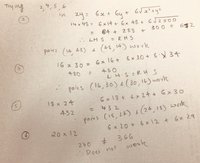 Trying 3, 4, 5, 6 in xy = 6x + 6y + 6√x²+y²
② 14 × 48 = 6×14 + 6×48 + 6√2500
= 84 + 288 + 300
LHS = RHS
pairs (14, 48) & (48, 14) work
③ 16 × 30 = 6×16 + 6×30 + 6 × 34
480 = 480
LHS = RHS
pairs (16, 30) & (30, 16) work
⑤ 18 × 24 = 6×18 + 6×24 + 6×30
432 = 432
pairs (18, 24) & (24, 18) work
⑥ 20 × 12 = 6×20 + 6×12 + 6×29
240 ≠ 366
Does not work